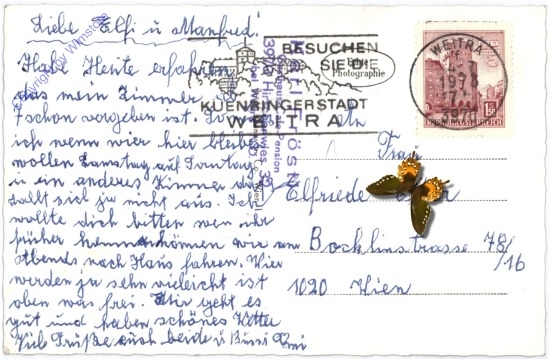 Liebe Elfi u Manfred!
Habe Heute erfahren
das mein Zimmer
schon vergeben ist.
ich wenn wir hier bleiben
wollen Samstag auf Sonntag
in ein anderes Zimmer
zallt sich ja nicht aus. Ich
wollte dich bitten wen ihr
früher kommen können wir am
Abends nach Haus fahren. Wier
werden ja sehn vieleicht ist
oben was frei. Mir geht es
gut und haben schönes Wetter
Viele Grüße euch beide u Bussi
BESUCHEN
SIE DIE
KUENRINGERSTADT
WEITRA
Echte
Photographie
WEITRA
1978
3970
An
Frau
Elfriede
Böcklinstrasse 78/16
1020 Wien
copyright by Wimstore